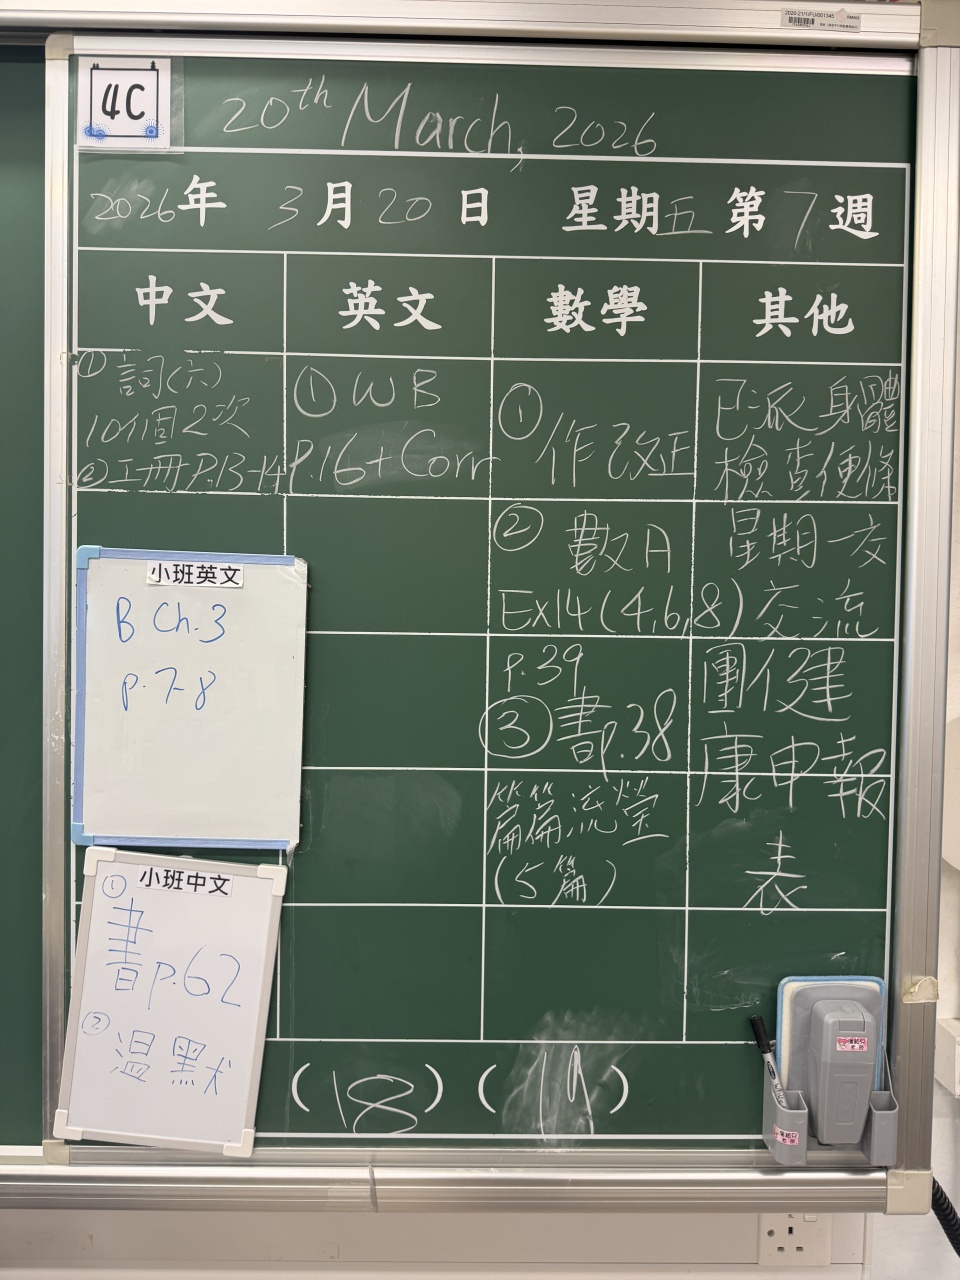 2020-21/1/FU/001345
4C
20th March, 2026
2026年 3月20日 星期五 第7週
中文
① 詞(六)
10個2次
② 工冊P.13-14
英文
① WB
P.16+Corr
數學
① 作改正
② 數A
Ex14(4,6,8)
p.39
③ 書p.38
篇篇流螢
(5篇)
其他
已派身體
檢查便條
星期一交
交流
團健
康申報
表
小班英文
B Ch.3
p.7-8
小班中文
① 書p.62
② 溫默
(18) (19)